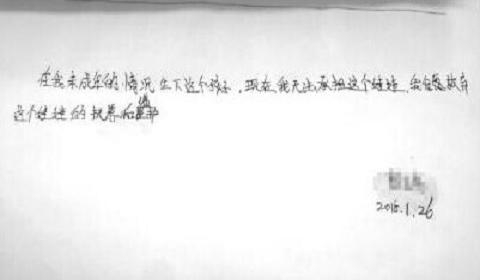 在我未成年的情况生下这个孩子，现在我无法承担这个 我自愿放弃
这个 的抚养和
2015.1.26